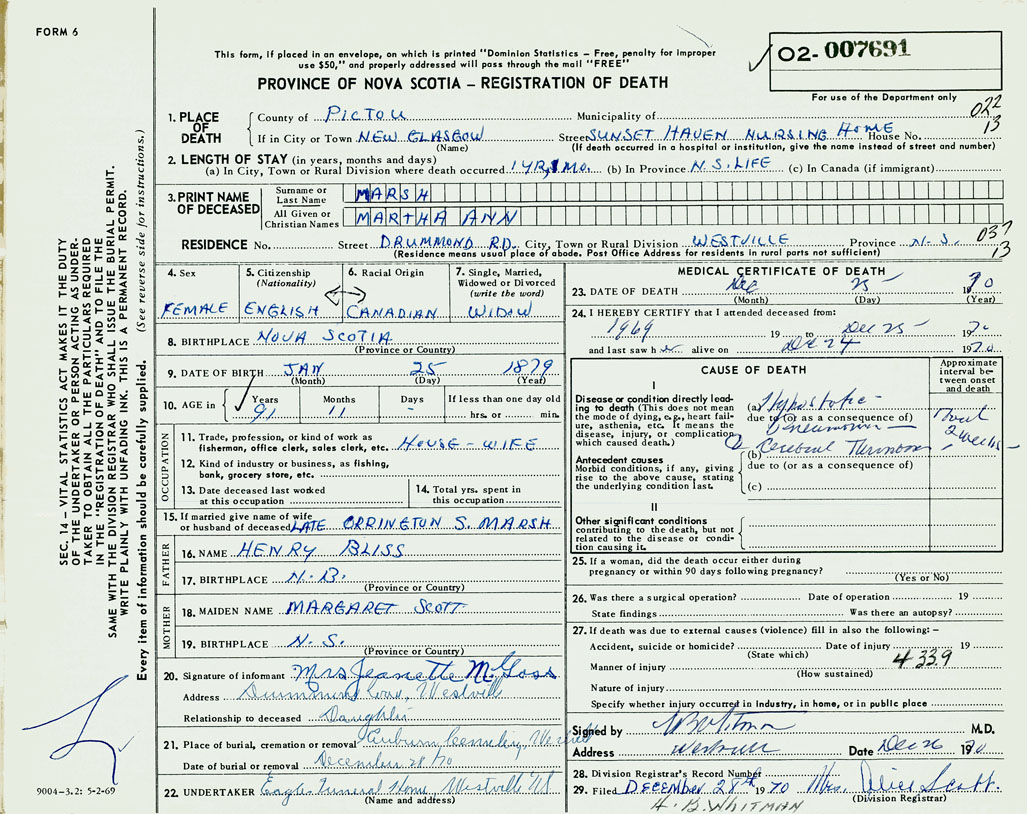 FORM 6
This form, if placed in an envelope, on which is printed "Dominion Statistics – Free, penalty for improper
use $50," and properly addressed will pass through the mail "FREE"
02-007691
PROVINCE OF NOVA SCOTIA – REGISTRATION OF DEATH
For use of the Department only
022
13
1. PLACE OF DEATH
County of PICTOU Municipality of
If in City or Town NEW GLASGOW Street SUNSET HAVEN NURSING HOME House No.
(Name) (If death occurred in a hospital or institution, give the name instead of street and number)
2. LENGTH OF STAY (in years, months and days)
(a) In City, Town or Rural Division where death occurred 1 YR, 1 MO. (b) In Province N.S. LIFE (c) In Canada (if immigrant)
3. PRINT NAME OF DECEASED
Surname or Last Name MARSH
All Given or Christian Names MARTHA ANN
037
13
RESIDENCE No. Street DRUMMOND RD. City, Town or Rural Division WESTVILLE Province N.S.
(Residence means usual place of abode. Post Office Address for residents in rural parts not sufficient)
4. Sex
FEMALE
5. Citizenship
(Nationality)
ENGLISH
6. Racial Origin
CANADIAN
7. Single, Married,
Widowed or Divorced
(write the word)
WIDOW
8. BIRTHPLACE NOVA SCOTIA
(Province or Country)
9. DATE OF BIRTH JAN 25 1879
(Month) (Day) (Year)
10. AGE in
Years Months Days If less than one day old
91 11 - hrs. or min.
OCCUPATION
11. Trade, profession, or kind of work as
fisherman, office clerk, sales clerk, etc. HOUSE-WIFE
12. Kind of industry or business, as fishing,
bank, grocery store, etc.
13. Date deceased last worked
at this occupation
14. Total yrs. spent in
this occupation
15. If married give name of wife
or husband of deceased LATE ORRINGTON S. MARSH
FATHER
16. NAME HENRY BLISS
17. BIRTHPLACE N.B.
(Province or Country)
MOTHER
18. MAIDEN NAME MARGARET SCOTT
19. BIRTHPLACE N.S.
(Province or Country)
20. Signature of informant Mrs Jeanette M. Goss
Address Drummond Road, Westville
Relationship to deceased Daughter
21. Place of burial, cremation or removal Auburn Cemetery, Westville
Date of burial or removal December 28/70
22. UNDERTAKER Eagle Funeral Home, Westville NS
(Name and address)
MEDICAL CERTIFICATE OF DEATH
23. DATE OF DEATH Dec 25 1970
(Month) (Day) (Year)
24. I HEREBY CERTIFY that I attended deceased from:
1969 19 to Dec 25 1970
and last saw her alive on Dec 24 1970
CAUSE OF DEATH
Approximate
interval be-
tween onset
and death
I
Disease or condition directly lead-
ing to death (This does not
mean the mode of dying, e.g., heart fail-
ure, asthenia, etc. It means the
disease, injury, or complication
which caused death.)
(a) Hypostatic
due to (or as a consequence of)
pneumonia
2 weeks
(b) Cerebral Thrombosis
Antecedent causes
Morbid conditions, if any, giving
rise to the above cause, stating
the underlying condition last.
due to (or as a consequence of)
(c)
II
Other significant conditions
contributing to the death, but not
related to the disease or condi-
tion causing it.
25. If a woman, did the death occur either during
pregnancy or within 90 days following pregnancy?
(Yes or No)
26. Was there a surgical operation? Date of operation 19
State findings Was there an autopsy?
27. If death was due to external causes (violence) fill in also the following: –
Accident, suicide or homicide? Date of injury 19
(State which)
4339
Manner of injury
(How sustained)
Nature of injury
Specify whether injury occurred in industry, in home, or in public place
Signed by M.D.
Address Westville Date Dec 26 1970
28. Division Registrar's Record Number
29. Filed DECEMBER 28th 1970 Mrs. Alice Scott.
(Division Registrar)
H. B. WHITMAN
SEC. 14 – VITAL STATISTICS ACT MAKES IT THE DUTY
OF THE UNDERTAKER OR PERSON ACTING AS UNDER-
TAKER TO OBTAIN ALL THE PARTICULARS REQUIRED
IN THE "REGISTRATION OF DEATH" AND TO FILE THE
SAME WITH THE DIVISION REGISTRAR WHO SHALL ISSUE THE BURIAL PERMIT.
WRITE PLAINLY WITH UNFADING INK. THIS IS A PERMANENT RECORD.
Every item of information should be carefully supplied. (See reverse side for instructions.)
9004-3.2: 5-2-69